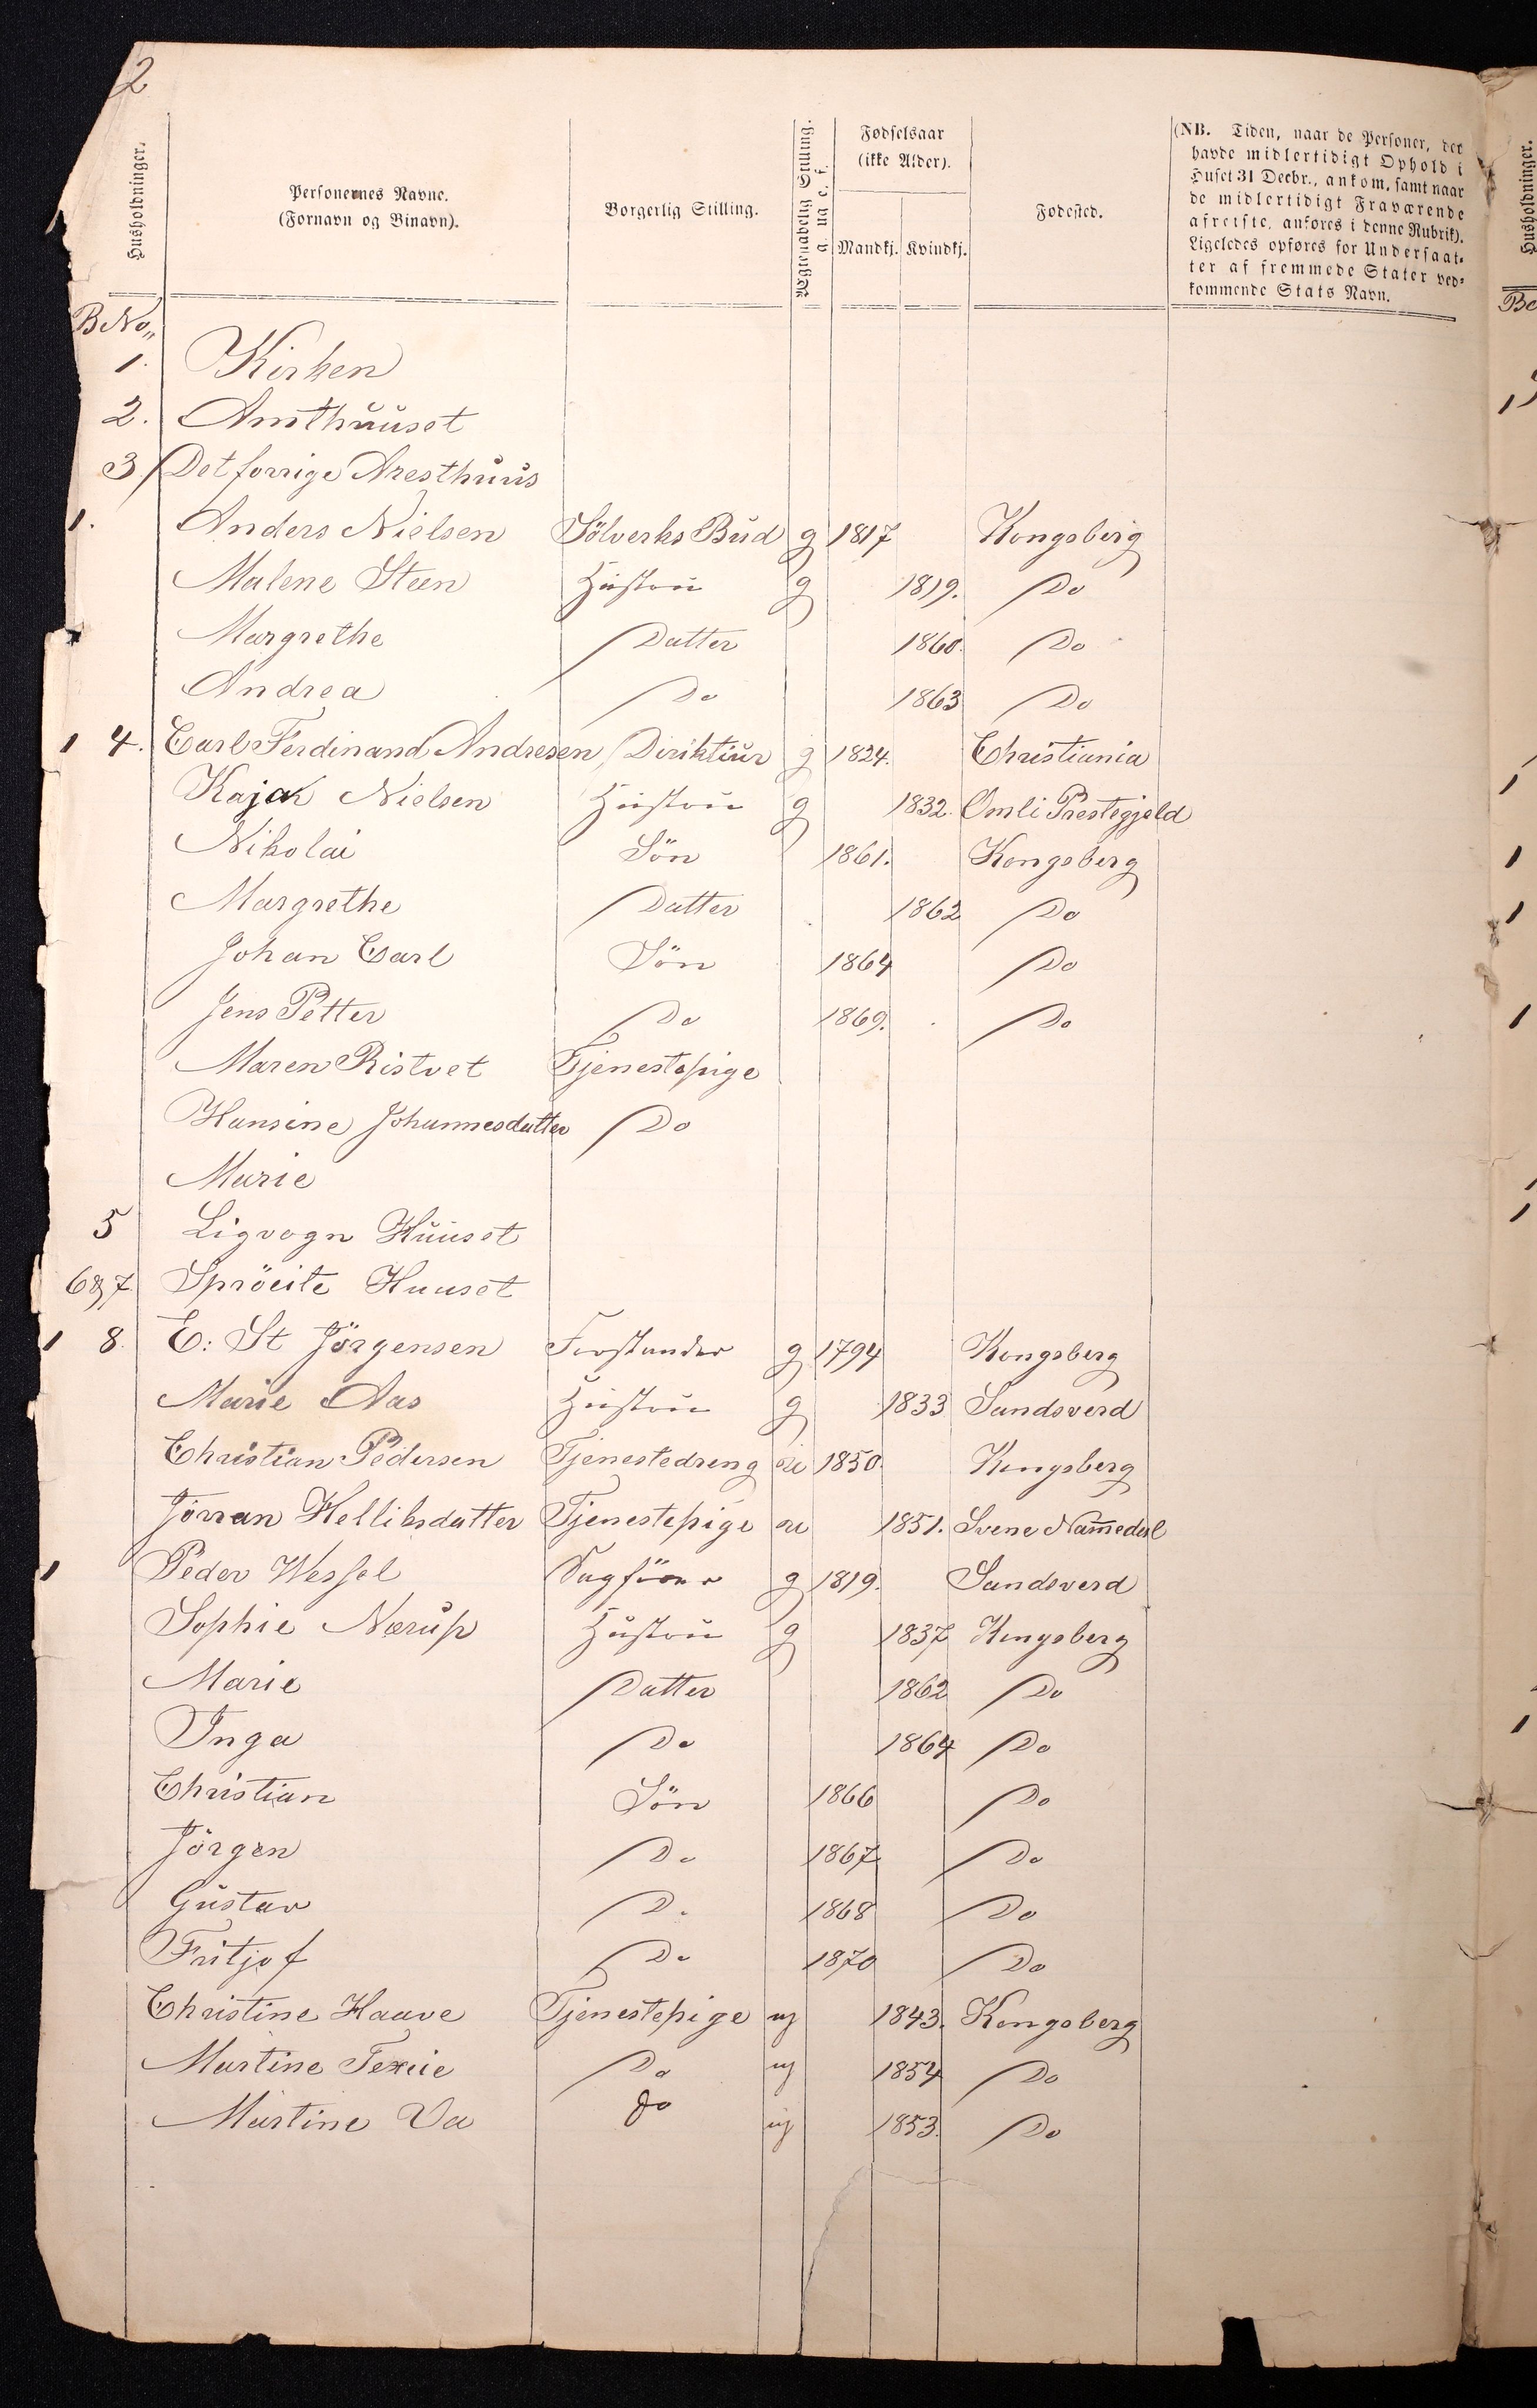 2
Husholdninger.
Personernes Navne.
(Fornavn og Binavn).
Borgerlig Stilling.
Ægteskabelig Stilling.
g. ug e. f.
Fødselsaar
(ikke Alder).
Mandkj. Kvindkj.
Fødested.
(NB. Tiden, naar de Personer, der
havde midlertidigt Ophold i
Huset 31 Decbr., ankom, samt naar
de midlertidigt Fraværende
afreiste, anføres i denne Rubrik).
Ligeledes opføres for Undersaat-
ter af fremmede Stater ved-
kommende Stats Navn.
Husholdninger.
B No
1. Kirken
2. Amthuuset
3 Det forrige Aresthuus
1. Anders Nielsen Sölverks Bud g 1817 Kongsberg
Malene Steen Hustru g 1819. Do
Margrethe Datter 1860. Do
Andrea Do 1863 Do
1 4. Carl Ferdinand Andresen Diriktiur g 1824. Christiania
Kaja Nielsen Hustru g 1832. Omli Prestegjeld
Nikolai Sön 1861. Kongsberg
Margrethe Datter 1862 Do
Johan Carl Sön 1864 Do
Jens Petter Do 1869. Do
Maren Ristvet Tjenestepige
Hansine Johannesdatter Do
Marie
5 Ligvogn Huuset
6&7 Spröeite Huuset
1 8. E: St Jörgensen Forstander g 1794 Kongsberg
Marie Aas Hustru g 1833 Sandsverd
Christian Pedersen Tjenestedreng 1850. Kongsberg
Jörran Hellihsdatter Tjenestepige 1851. Svene Nammedal
1 Peder Wessel Sagförer g 1819. Sandsverd
Sophie Nærup Hustru g 1837 Kongsberg
Marie Datter 1862 Do
Inga Do 1864 Do
Christian Sön 1866 Do
Jörgen Do 1867 Do
Gustav Do 1868 Do
Fritjof Do 1870 Do
Christine Haave Tjenestepige ug 1843. Kongsberg
Martine Do ug 1854 Do
Martine Va do ug 1853. Do